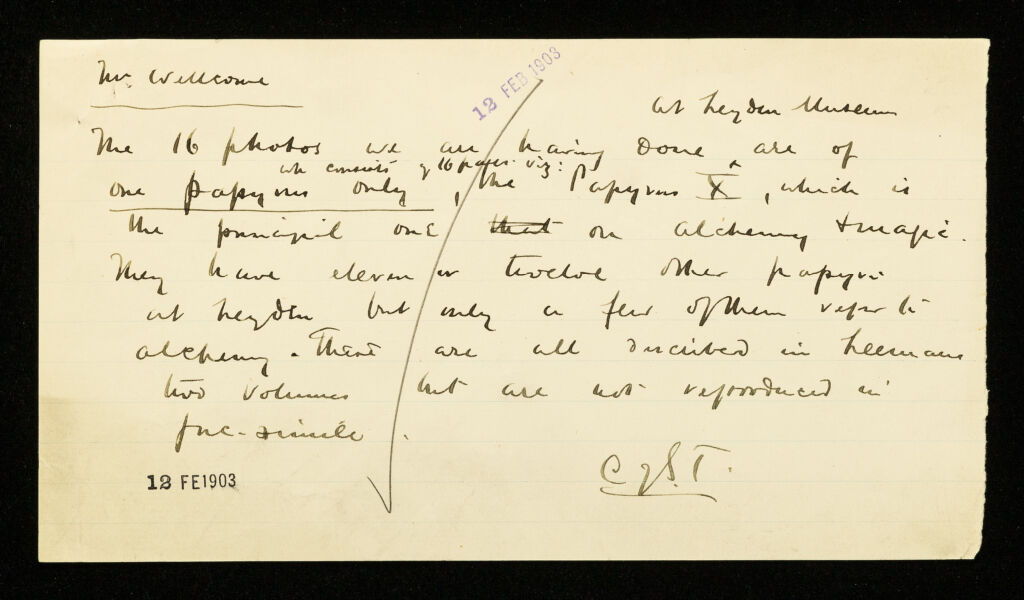 Mr Wellcome
12 FEB 1903
at Leyden Museum
The 16 photos we are having done are of
wh consists of 16 pages. viz:
one papyrus only, the Papyrus X, which is
the principal one that on alchemy + magic.
They have eleven or twelve other papyri
at Leyden but only a few of them refer to
alchemy. These are all described in Leemans
two volumes but are not reproduced in
fac-simile.
C J S. T.
12 FE 1903